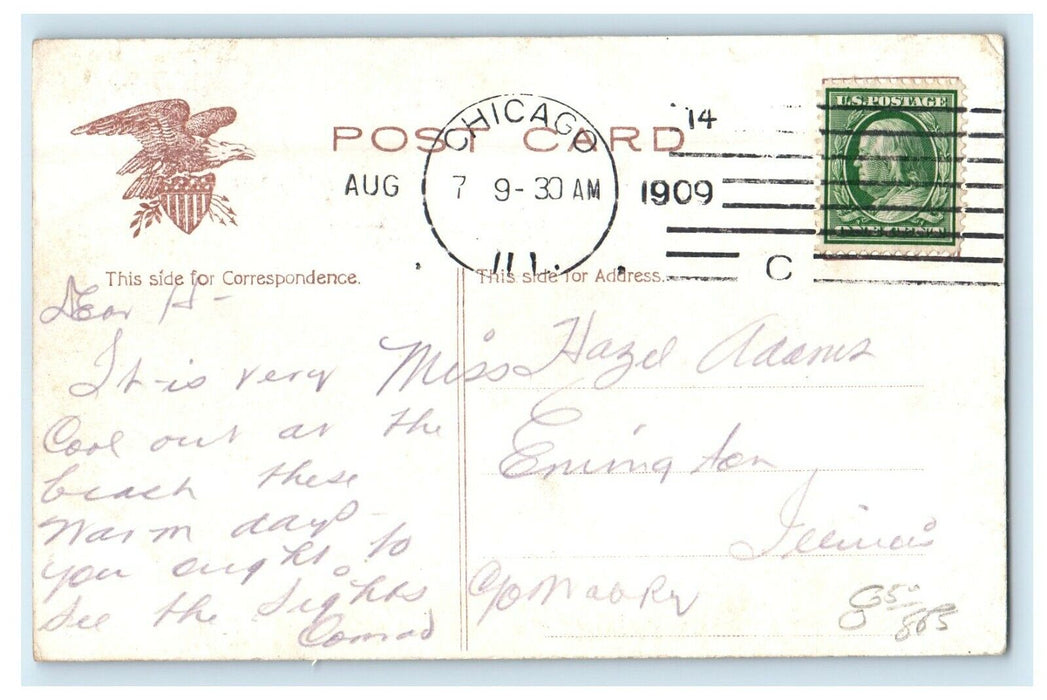 POST CARD
CHICAGO
'14
AUG 7 9-30 AM 1909
ILL.
C
U.S. POSTAGE
This side for Correspondence.
This side for Address.
Dear H-
It is very
Cool out at the
beach these
Warm days-
you ought to
see the Sights
Conrad
Miss Hazel Adams
Emington
Illinois
C/o